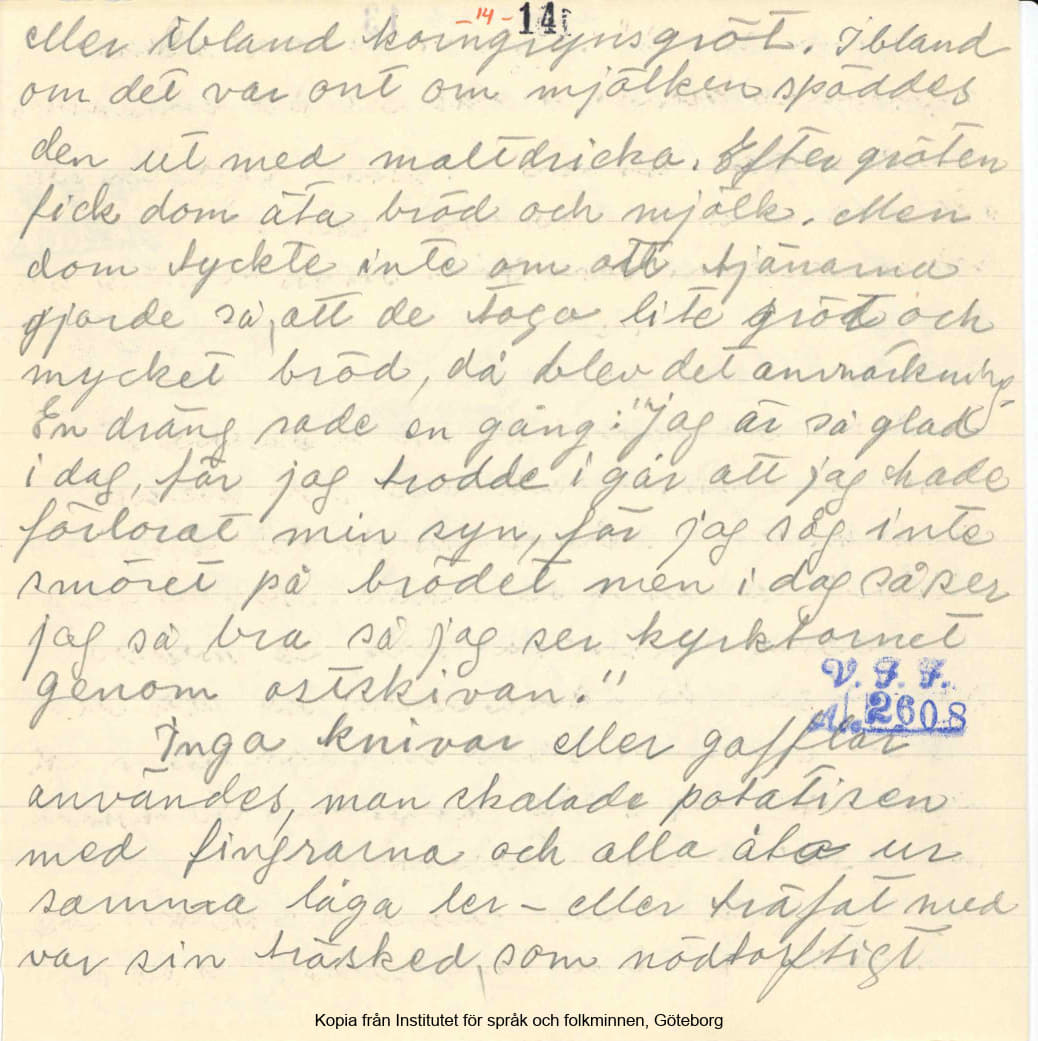 - 14 - 14
eller ibland korngrynsgröt. Ibland
om det var ont om mjölken späddes
den ut med maltdricka. Efter gröten
fick dom äta bröd och mjölk. Men
dom tyckte inte om att tjänarna
gjorde så, att de togo lite gröt och
mycket bröd, då blev det anmärkning.
En dräng sade en gång: "jag är så glad
i dag, för jag trodde i går att jag hade
förlorat min syn, för jag såg inte
smöret på brödet men i dag så ser
jag så bra så jag ser kyrktornet
genom ostskivan."
V. F. F.
A. 2608
Inga knivar eller gafflar
användes, man skalade potatisen
med fingrarna och alla åto ur
samma låga ler - eller träfat med
var sin träsked, som nödtorftigt
Kopia från Institutet för språk och folkminnen, Göteborg